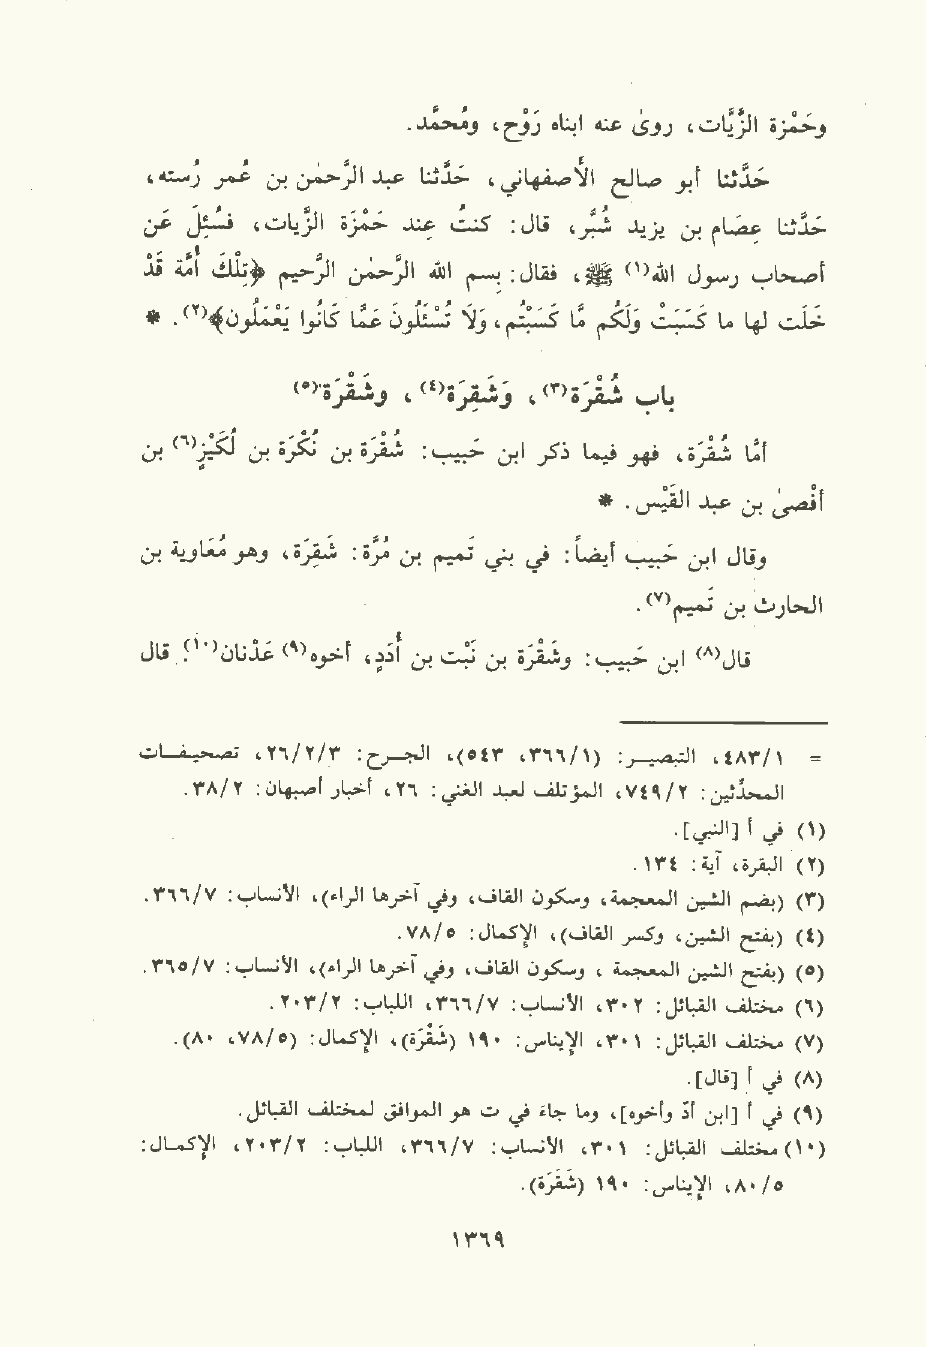 وحَمْزة الزَّيَّات، روى عنه ابناه رَوْح، ومُحمَّد.
حَدَّثنا أبو صالح الأصفهاني، حَدَّثنا عبد الرَّحمٰن بن عُمر رُسته،
حَدَّثنا عِصَام بن يزيد شُبَّر، قال: كنتُ عِند حَمْزَة الزَّيات، فسُئِلَ عَن
أصحاب رسول الله(١) ﷺ، فقال: بسم الله الرَّحمٰن الرَّحيم ﴿تِلْكَ أُمَّة قَدْ
خَلَت لها ما كَسَبَتْ وَلَكُم مَّا كَسَبْتُم، وَلاَ تُسْئَلُونَ عَمَّا كَانُوا يَعْمَلُونَ﴾(٢). *
باب شُقْرَة(٣)، وَشَقِرَة(٤)، وشَقْرَة(٥)
أمَّا شُقْرَة، فهو فيما ذكر ابن حَبيب: شُقْرَة بن نُكْرَة بن لُكَيْزٍ(٦) بن
أفْصىٰ بن عبد القَيْس. *
وقال ابن حَبيب أيضاً: في بني تَميم بن مُرَّة: شَقِرَة، وهو مُعَاوية بن
الحارث بن تَميم(٧).
قال(٨) ابن حَبيب: وشَقْرَة بن نَبْت بن أُدَد، أخوه(٩) عَدْنان(١٠). قال
= ٤٨٣/١، التبصير: (٣٦٦/١، ٥٤٣)، الجرح: ٢٦/٢/٣، تصحيفات
المحدِّثين: ٧٤٩/٢، المؤتلف لعبد الغني: ٢٦، أخبار أصبهان: ٣٨/٢.
(١) في أ [النبي].
(٢) البقرة، آية: ١٣٤.
(٣) (بضم الشين المعجمة، وسكون القاف، وفي آخرها الراء)، الأنساب: ٣٦٦/٧.
(٤) (بفتح الشين، وكسر القاف)، الإكمال: ٧٨/٥.
(٥) (بفتح الشين المعجمة ، وسكون القاف، وفي آخرها الراء)، الأنساب: ٣٦٥/٧.
(٦) مختلف القبائل: ٣٠٢، الأنساب: ٣٦٦/٧، اللباب: ٢٠٣/٢.
(٧) مختلف القبائل: ٣٠١، الإيناس: ١٩٠ (شَقْرَة)، الإكمال: (٧٨/٥، ٨٠).
(٨) في أ [قال].
(٩) في أ [ابن أدّ وأخوه]، وما جاء في ت هو الموافق لمختلف القبائل.
(١٠) مختلف القبائل: ٣٠١، الأنساب: ٣٦٦/٧، اللباب: ٢٠٣/٢، الإكمال:
٨٠/٥، الإيناس: ١٩٠ (شَقَرَة).
١٣٦٩